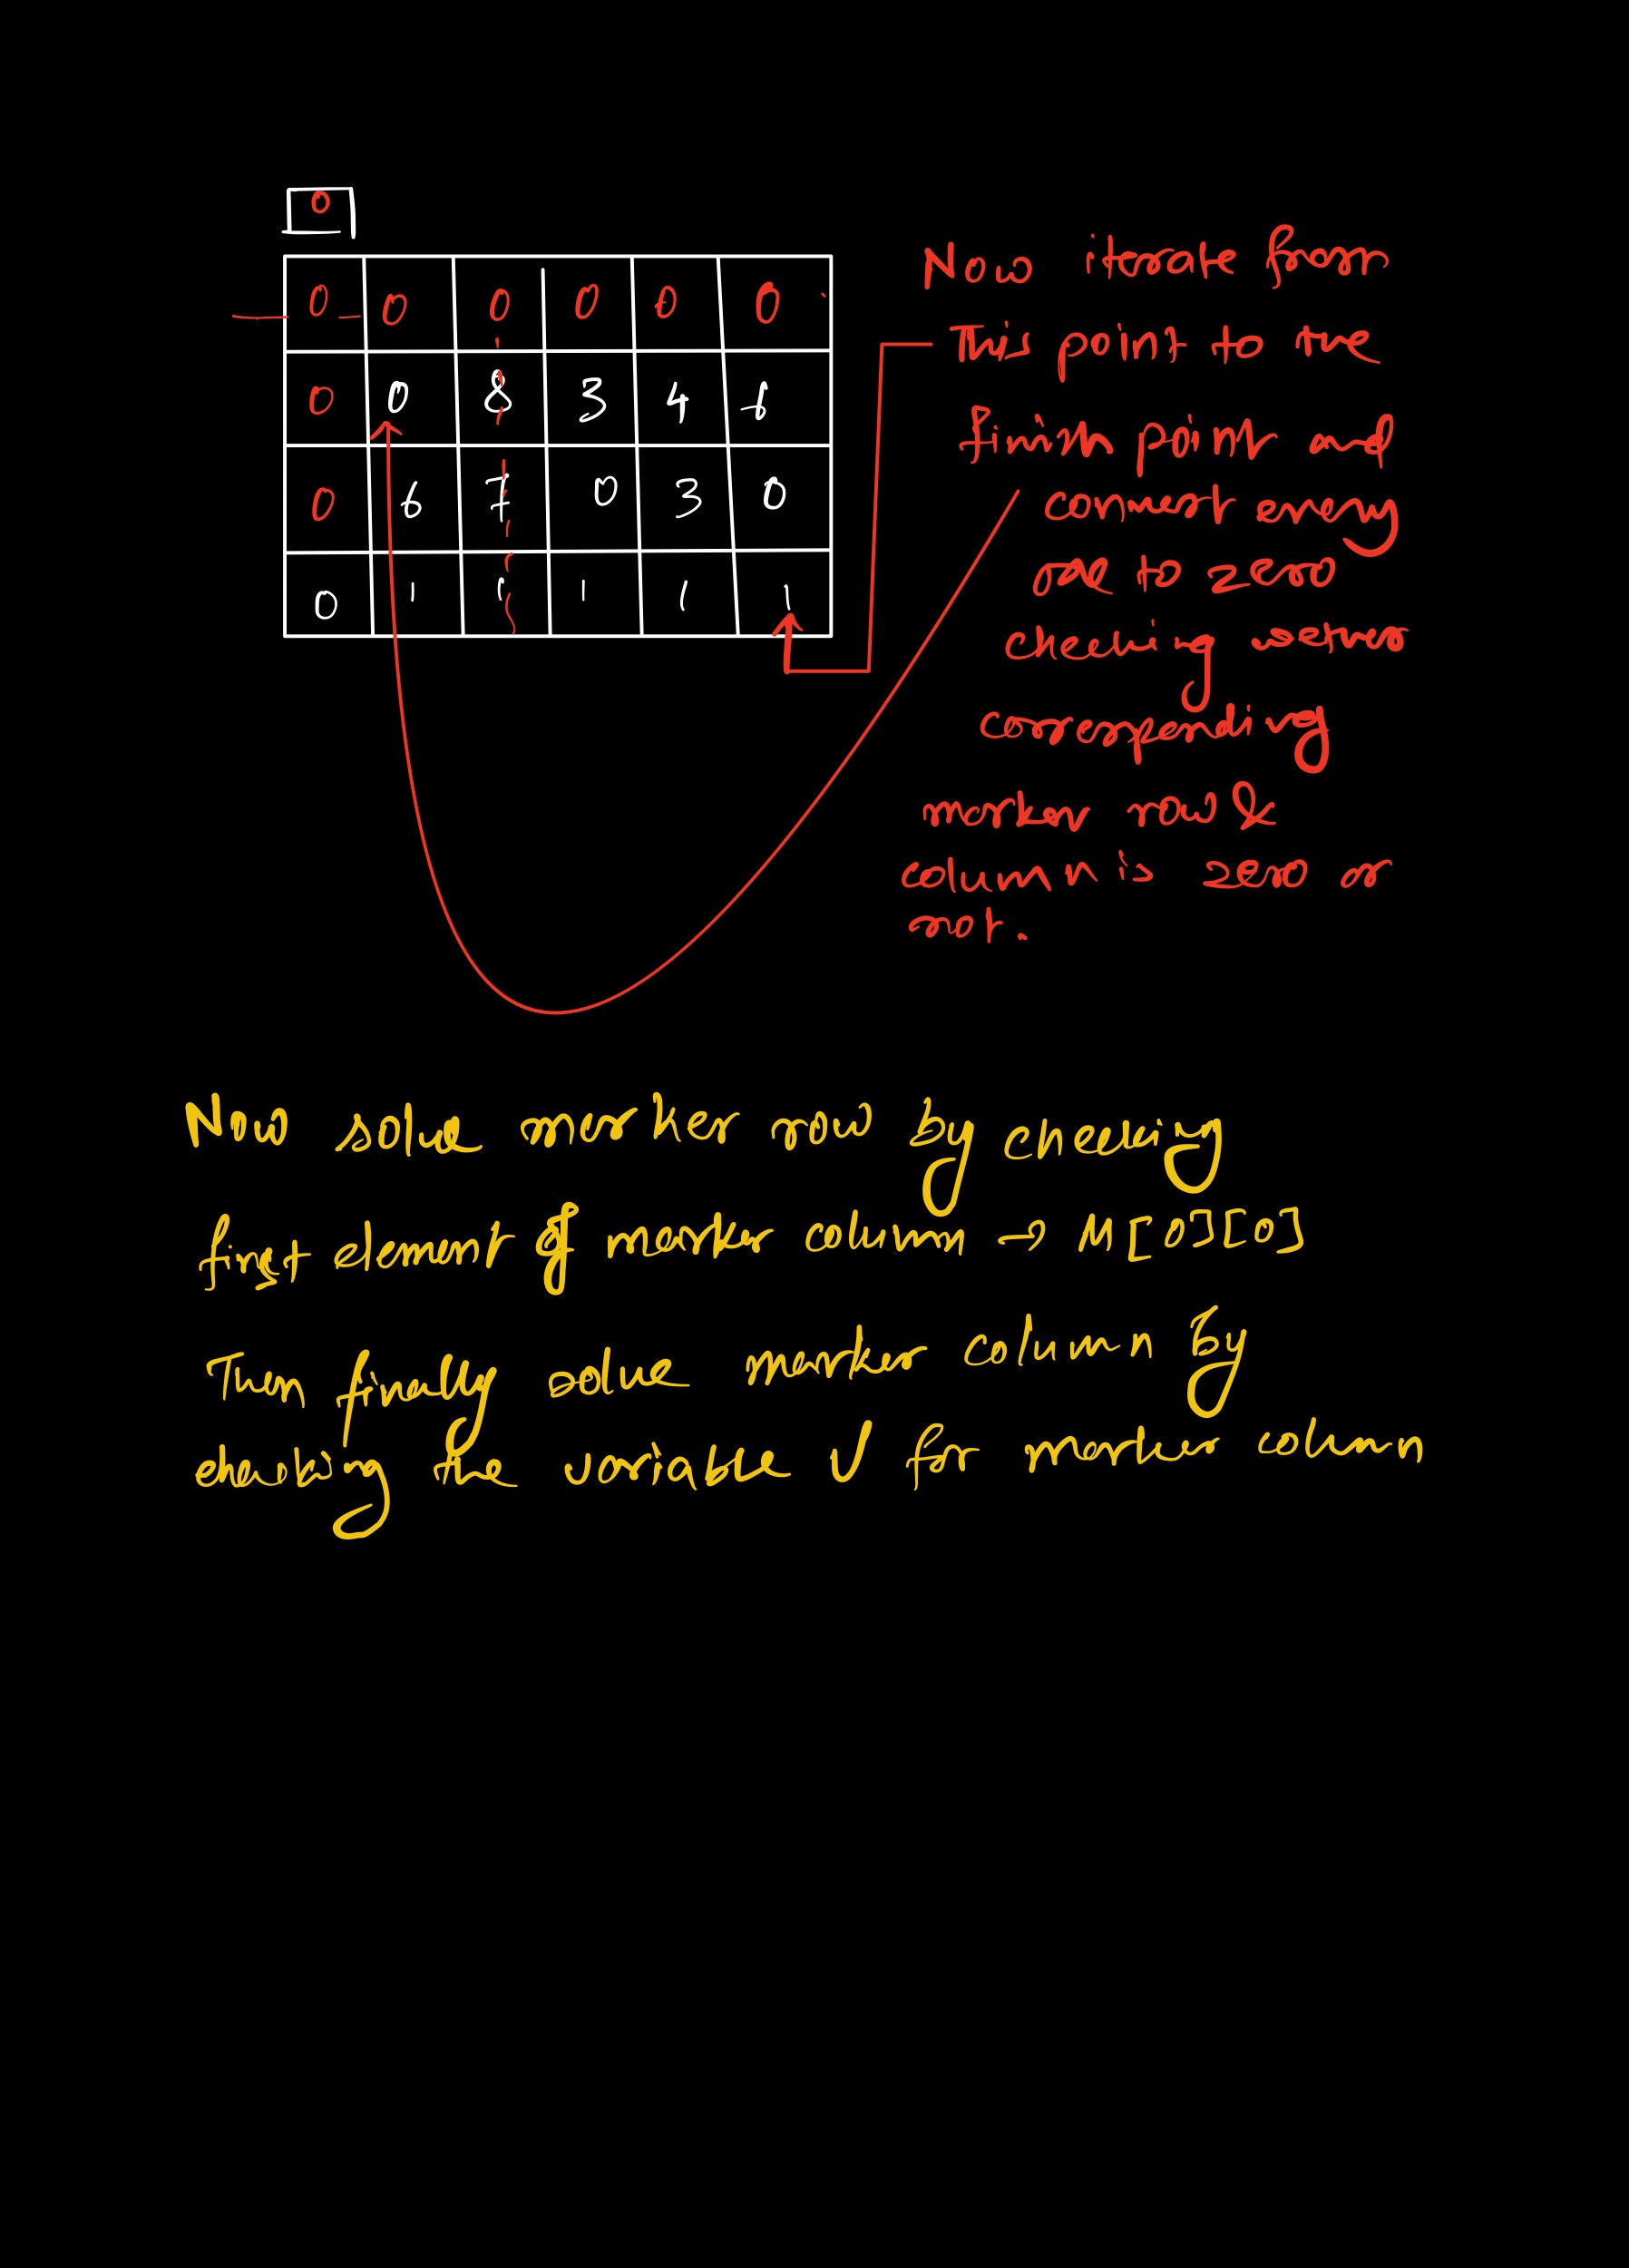 0
0 0 0 0 0 0
0 0 8 3 4 6
0 6 7 0 3 0
0 1 1 1 1 1
Now iterate from
This point to the
finish point and
convert every
to zero
checking
corresponding
marker row &
column is zero or
not.
Now solve marker row by checking
first element of marker column → M[0][0]
Then finally solve marker column by
checking the variable V for marker column